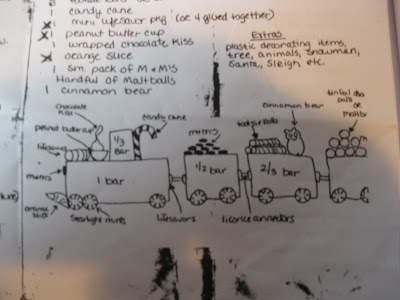 candy cane
X mini lifesavor pkg (or 4 glued together)
X peanut butter cup
1 wrapped chocolate kiss
X orange slice
1 sm. pack of M+M's
Handful of Maltballs
1 cinnamon bear
Extras
plastic decorating items,
tree, animals, Snowman,
Santa, Sleigh etc.
chocolate
kiss
candy cane
peanut butter cup
1/3
Bar
lifesavers
m+m's
tootsie rolls
cinnamon bear
tinfoil
balls
or
m+m's
1 bar
1/2 bar
2/3 bar
orange
slice
Starlight mints
lifesavors
licorice connectors